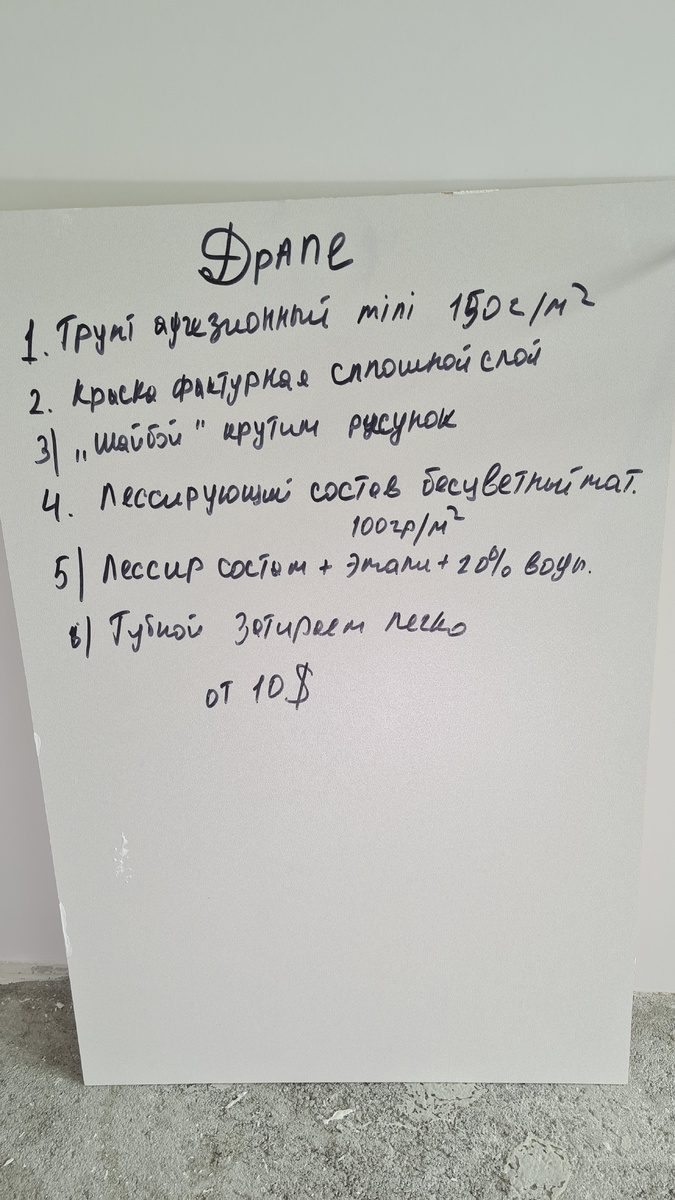 Драпе
1. Грунт адгезионный mini 150г/м²
2. Краска фактурная сплошной слой
3) „Шайбой" крутим русунок
4. Лессирующий состав бесцветный мат.
100гр/м²
5) Лессир состом + эмали + 20% воды.
6) Губкой затираем легко
от 10$